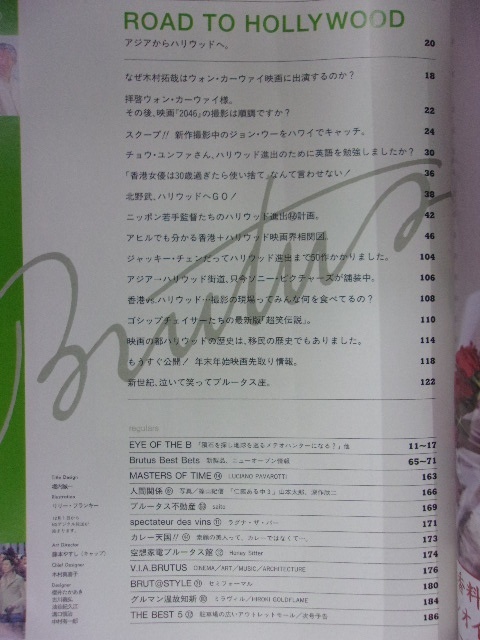 ROAD TO HOLLYWOOD
アジアからハリウッドへ。 20
なぜ木村拓哉はウォン・カーウァイ映画に出演するのか? 18
拝啓ウォン・カーウァイ様。
その後、映画『2046』の撮影は順調ですか? 22
スクープ!! 新作撮影中のジョン・ウーをハワイでキャッチ。 24
チョウ・ユンファさん、ハリウッド進出のために英語を勉強しましたか? 30
「香港女優は30歳過ぎたら使い捨て」なんて言わせない! 36
北野武、ハリウッドへGO! 38
ニッポン若手監督たちのハリウッド進出㊙計画。 42
アヒルでも分かる香港+ハリウッド映画界相関図。 46
ジャッキー・チェンだってハリウッド進出まで50作かかりました。 104
アジア→ハリウッド街道、只今ソニー・ピクチャーズが舗装中。 106
香港vs.ハリウッド…撮影の現場ってみんな何を食べてるの? 108
ゴシップチェイサーたちの最新版「超笑伝説」。 110
映画の都ハリウッドの歴史は、移民の歴史でもありました。 114
もうすぐ公開! 年末年始映画先取り情報。 118
新世紀、泣いて笑ってブルータス座。 122
Brutus
regulars
EYE OF THE B 「隕石を探し地球を巡るメテオハンターになる?」他 11~17
Brutus Best Bets 新製品、ニューオープン情報 65~71
MASTERS OF TIME LUCIANO PAVAROTTI 163
人間関係 写真/篠山紀信 166
ブルータス不動産 169
spectateur des vins ラグナ・ザ・バー 171
カレー天国!! 173
空想家電ブルータス館 Honey Sitter 174
V.I.A.BRUTUS CINEMA/ART/MUSIC/ARCHITECTURE 176
BRUT@STYLE セミフォーマル 180
グルマン温故知新 ミラヴィル/HIROKI GOLDFLAME 184
THE BEST 5 駐車場の広いアウトレットモール/次号予告 186
Title Design
堀内誠一
Illustration
リリー・フランキー
Art Director
藤本やすし(キャップ)
Chief Designer
木村真喜子
Designer